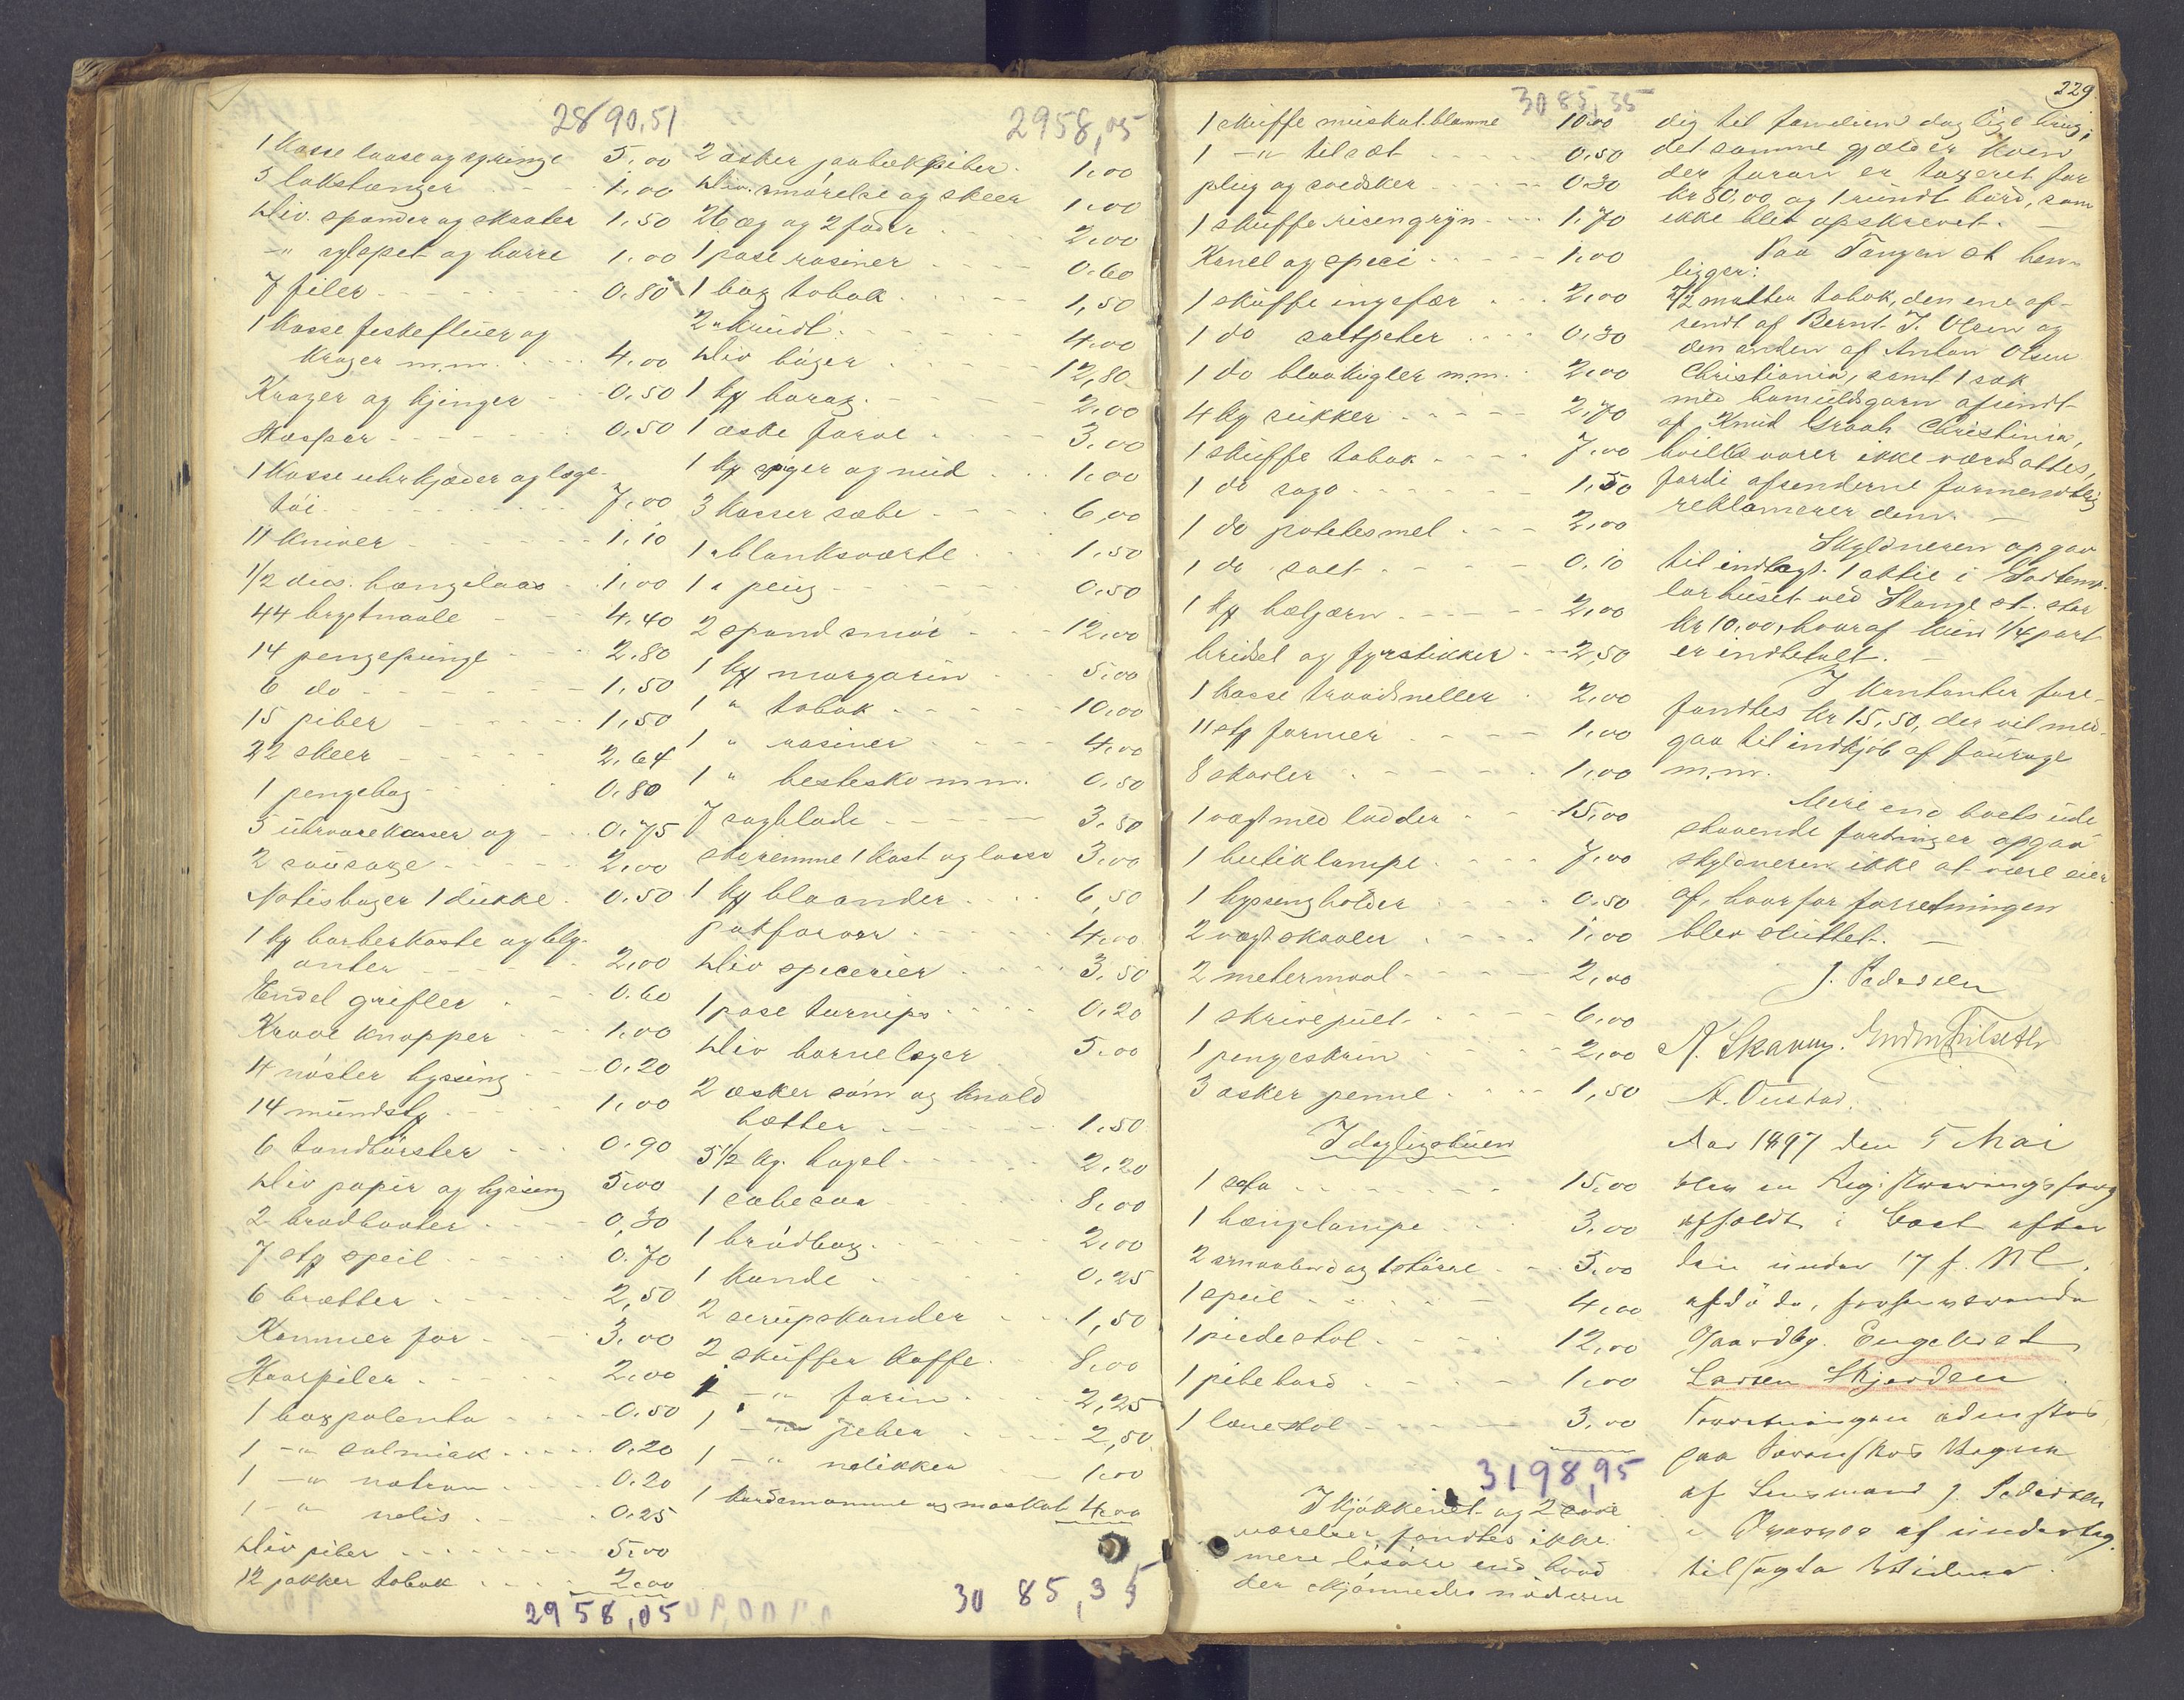 2890,51
1 Kasse laase og 5,00
5 lokstænger 1,00
Div. spander og skaaler 1,50
-"- og barre 1,00
7 filer 0,80
1 Kasse fiskefluer og
Kroger m.m. 4,00
Kroger og hjinger 0,50
Hasper 0,50
1 Kasse uhrkjæder og læge-
tøi 7,00
11 kniver 1,10
1/2 dus. hængelaas 1,00
44 brystnaale 4,40
14 pengepunge 2,80
6 do 1,50
15 piber 1,50
22 skeer 2,64
1 pengebog 0,80
5 og 0,75
2 2,00
Notisbøger 1 dukke 0,50
1 kg barberkoste og bly-
anter 2,00
Endel grifler 0,60
Krave knapper 1,00
4 nøster hyssing 0,20
14 mundstk 1,00
6 tandbørster 0,90
Div papir og hyssing 5,00
2 0,30
7 stk speil 0,70
6 brætter 2,50
Kammer for 3,00
Haarpiler 2,00
1 box polenta 0,50
1 -"- salmiak 0,20
1 -"- natron 0,20
1 -"- nelis 0,25
Div piber 5,00
12 pakker tobak 2,00
2958,05
2958,05
2 æsker 1,00
Div. smørelse og skeer 1,00
26 æg og 2 fade 2,00
1 pose rosiner 0,60
1 box tobak 1,50
2 " 4,00
Div bøger 12,80
1 kg borax 2,00
1 æske farve 3,00
1 kg og 1,00
3 Kasser sæbe 6,00
1 " blanksværte 1,50
1 " 0,50
2 spand smør 12,00
1 kg margarin 5,00
1 " tobak 10,00
1 " rosiner 4,00
1 " hestesko m.m. 0,80
7 sagblade 3,80
skoremme 1 Kost og lasse 3,00
1 kg blaander 6,50
4,00
Div specerier 3,50
1 pose turnips 0,20
Div barneleger 5,00
2 æsker søm og knald
hætter 1,50
5 1/2 kg. hagel 2,20
1 8,00
1 brødbox 2,00
1 Kande 0,25
2 sirupskander 1,50
2 skuffer Kaffe 8,00
1 -"- farin 2,25
1 -"- peber 2,50
1 -"- nelikker 1,00
1 kardemomme og maskot 4,00
3085,35
3085,35
1 skuffe muskat.blomme 10,00
1 -"- 0,50
plug og svedsker 0,30
1 skuffe risengryn 1,70
Kanel og speci 1,00
1 skuffe ingefær 2,00
1 do saltpeter 0,30
1 do blaakugler m.m. 2,00
4 kg sukker 2,70
1 skuffe tobak 7,00
1 do sago 1,50
1 do potetesmel 2,00
1 do salt 0,10
1 kg 2,00
bridsel og fyrstikker 2,50
1 Kasse traadsneller 2,00
11 stk former 1,00
8 skovler 1,00
1 vægt med lodder 15,00
1 butiklampe 7,00
1 hyssingholder 0,50
2 vægtskaaler 1,00
2 metermaal 2,00
1 skrivepult 6,00
1 pengeskrin 2,00
3 æsker penne 1,50
I dagligstuen
1 sofa 15,00
1 hængelampe 3,00
2 smaabord og 1 større 3,00
1 speil 4,00
1 piedestal 12,00
1 pibebord 1,00
1 lænestol 3,00
3198,95
I kjøkkenet og 2 sove
værelser fandtes ikke
mere løsøre end hvad
der skjønnedes nødven
229.
dig til familien daglige brug,
det samme gjælder Koen
der foran er taxeret for
kr 80,00, og 1 rundt bord, som
ikke blev opskrevet. —
Paa Tangen st hen-
ligger:
2 matter tobak, den ene af-
sendt af Bernt J. Olsen og
den anden af Anton Olsen
Christiania, samt 1 sæk
med bomuldsgarn afsendt
af Knud Graah Christinia,
hvilke varer ikke værdsattes,
fordi afsenderne formentlig
reklamerer dem. —
Skyldneren opgav
til indlagt 1 aktie i Godtemp-
larhuset ved Stange st. stor
kr 10,00, hvoraf kun 1/4 part
er indbetalt. —
I Kontanter fore-
fandtes kr 15,50, der vil med-
gaa til indkjøb af fourage
m.m.
Mere end boets ude
staaende fordringer opgav
skyldneren ikke at være eier
af, hvorfor forretningen
blev sluttet. —
J. Pedersen
N. Skavng.
Aar 1897 den 5 Mai
blev en Registreringsforr
afholdt i Boet efter
den under 17 f. M.
afdøde, forhenværende
Gaardbg. Engebret
Larsen Skjerden
Forretningen administ
paa Sorenskrs Vegne
af Lensmand J. Pedersen
i Overvær af underteg.
tilsagte Vidner.